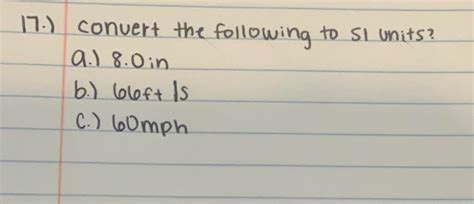 17.) convert the following to SI units?
a.) 8.0in
b.) 66ft/s
c.) 60mph